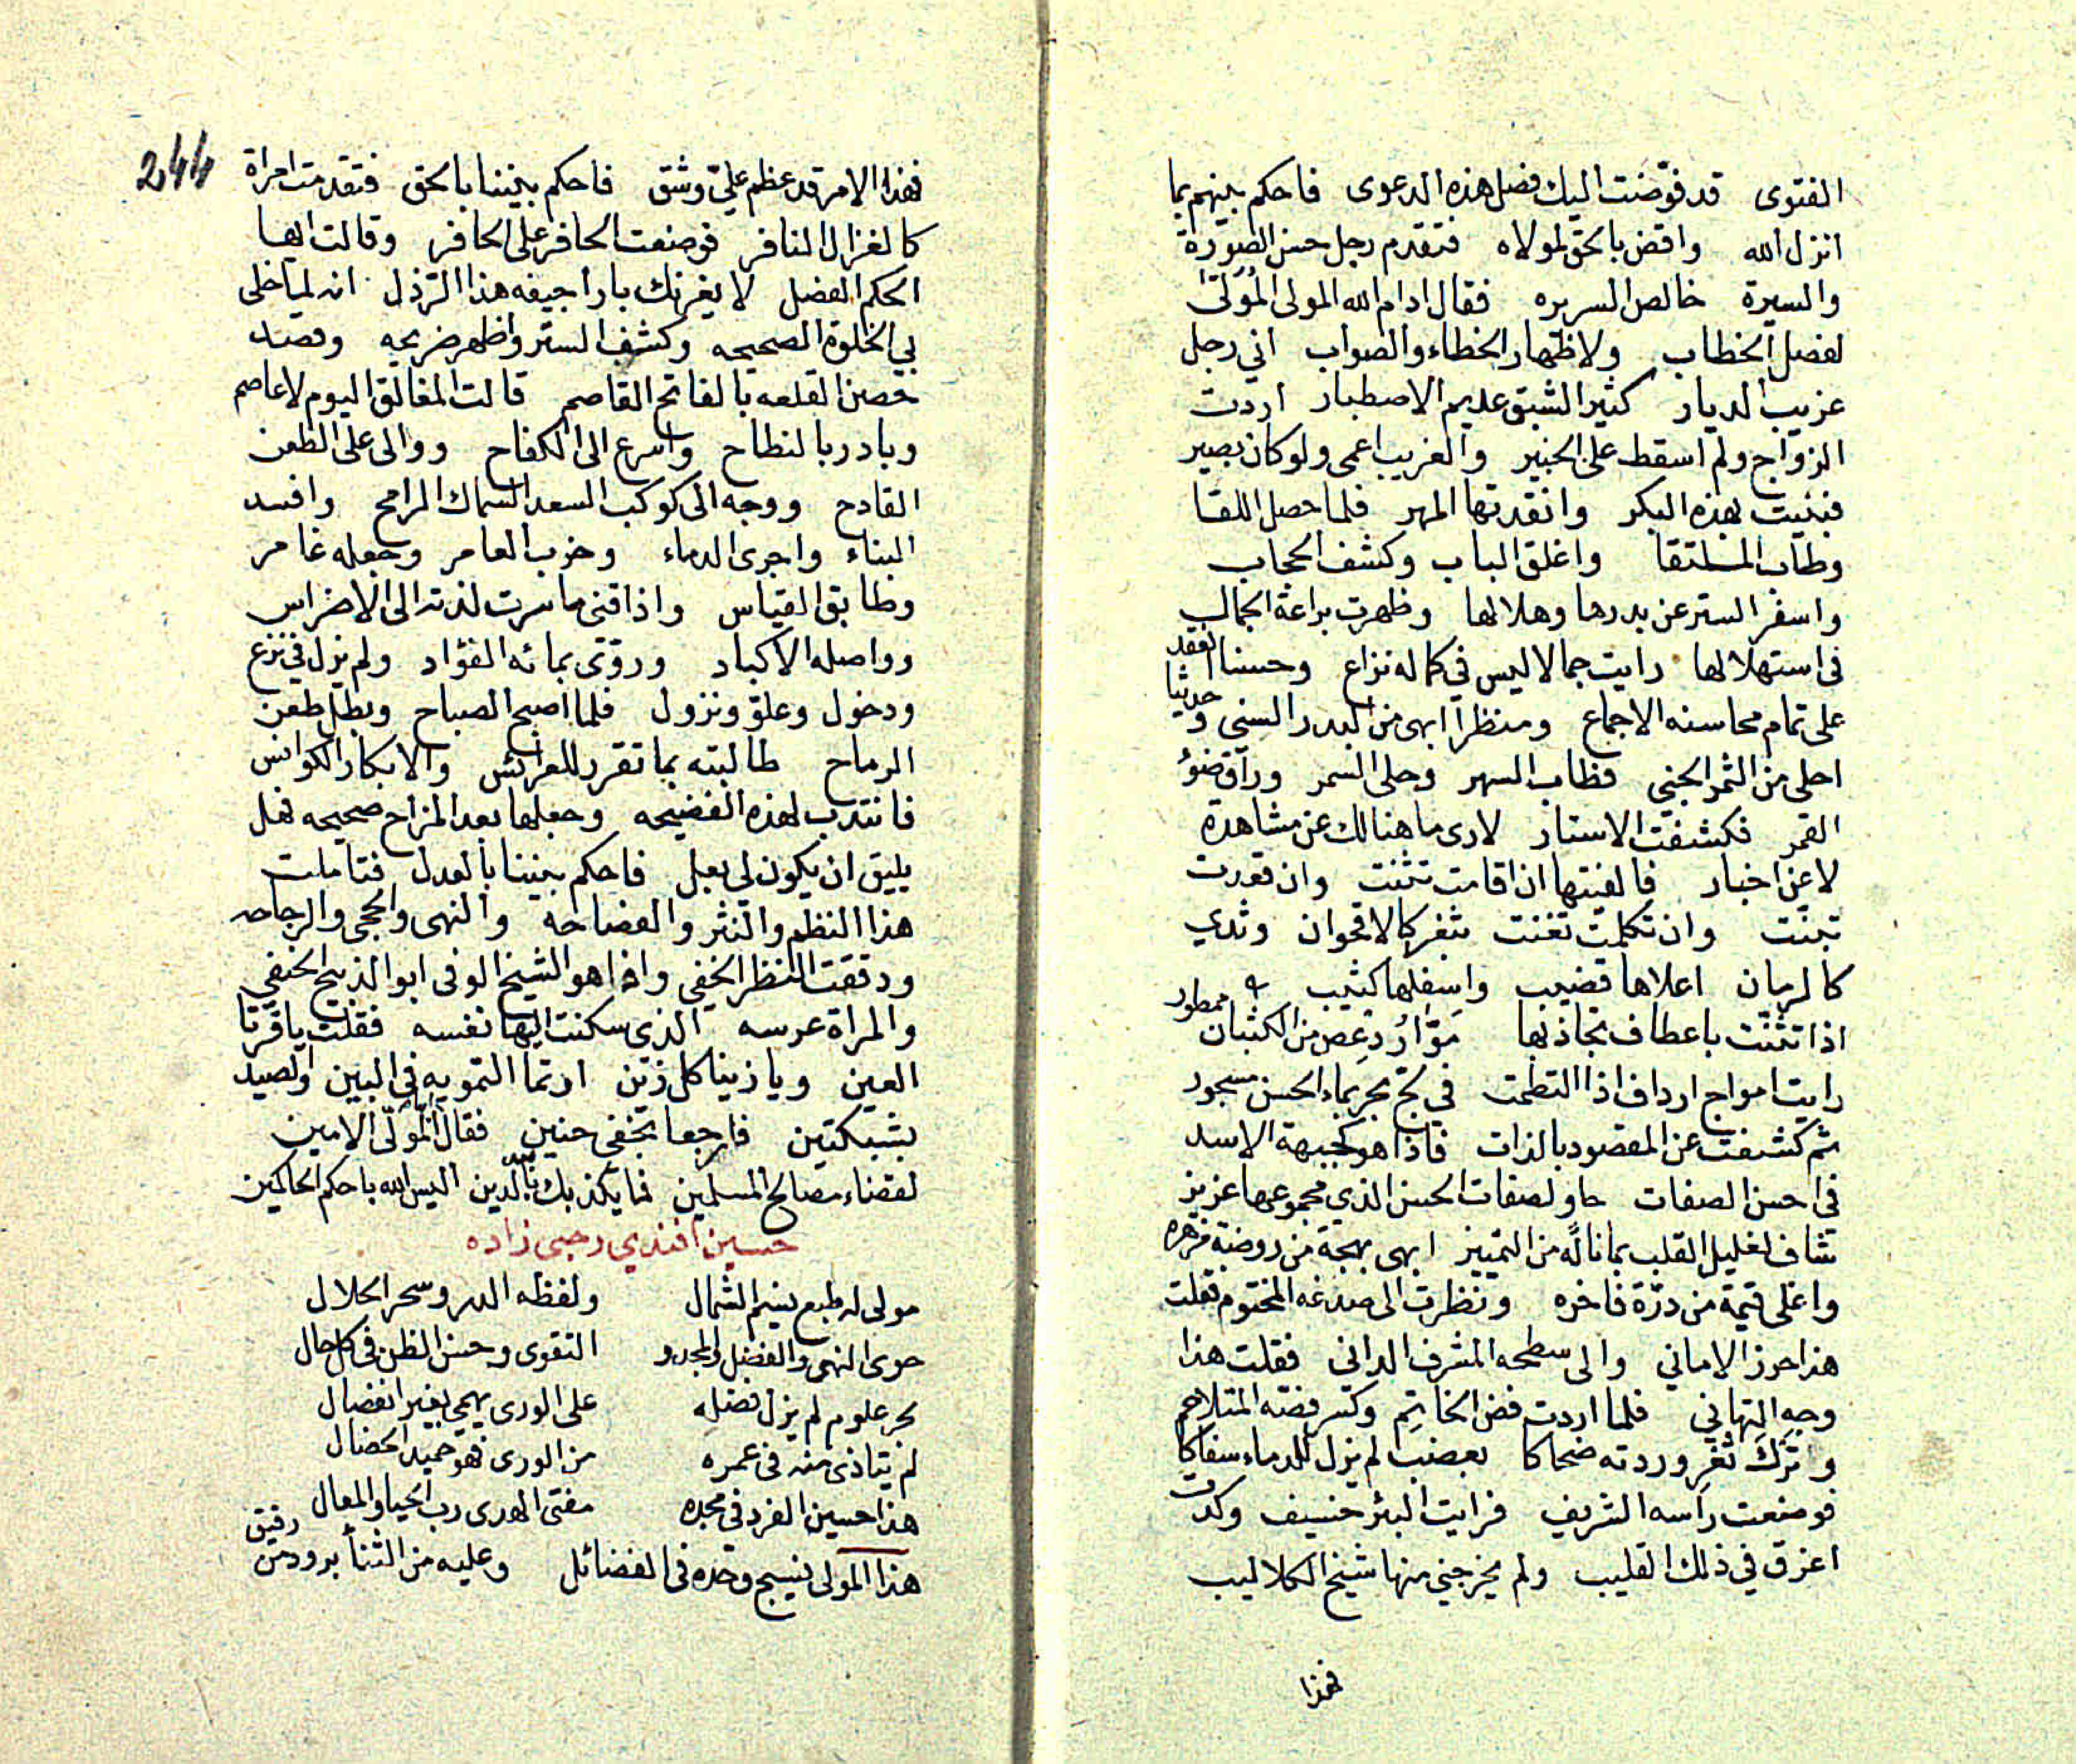 الفتوى قد فوّضت اليك فصل هذه الدعوى فاحكم بينهم بما
انزل الله واقض بالحق لمولاه فتقدم رجل حسن الصورة
والسيرة خالص السريره فقال ادام الله المولى المُوَلّى
لفصل الخطاب ولاظهار الخطاء والصواب اني رجل
غريب الديار كثير الشبق عديم الاصطبار اردت
الزواج ولم اسقط على الخبير والغريب اعمى ولو كان بصير
فبنيت بهذه البكر وانقدتها المهر فلما حصل اللقا
وطاب الملتقا واغلق الباب وكشف الحجاب
واسفر الستر عن بدرها وهلالها وظهرت براعة الجمال
في استهلالها رايت جمالا ليس في كماله نزاع وحسنا انعقد
على تمام محاسنه الاجماع ومنظراً ابهى من البدر السنى وحديثا
احلى من الثمر الجني فطاب السهر وحلى السمر وراق ضوُ
القمر فكشفت الاستار لارى ما هنالك عن مشاهدة
لا عن اخبار فالفيتها ان اقامت تثنت وان قعدت
تبنّت وان تكلمت تغنت بثغر كالاقحوان وثدي
كالرمان اعلاها قضيب واسفلها كثيب
اذا تثنّت باعطاف تجاذبها مَوّارُ دِعصٍ من الكثبان ممطور
رايت امواج ارداف اذا التطمت في لج بحر بماء الحسن مسجور
ثم كشفت عن المقصود بالذات فاذا هو كجبهة الاسد
في احسن الصفات حاو لصفات الحسن الذي مجموعها عزيز
شاف لغليل القلب بما ناله من التمييز ابهى بهجة من روضة مزهره
واغلى قيمة من درّة فاخره ونظرت الى صدغه المختوم فقلت
هذا حرز الاماني والى سطحه المشرف الداني فقلت هذا
وجه التهاني فلما اردت فض الخاتِم وكسر فضه المتلاحم
وتركَ ثغر وردته ضحاكا بعضب لم يزل للدماء سفاكا
فوضعت راسه الشريف فرايت البئر خسيف وكدت
اغرق في ذلك القليب ولم يخرجني منها شيخ الكلاليب
فهذا
244
فهذا الامر قد عظم عليّ وشق فاحكم بيننا بالحق فتقدمت امراة
كالغزال النافر فوضعت الحافر على الحافر وقالت ايها
الحكم الفضل لا يغرنك باراجيفه هذا الرّذل انه لما خلى
بي الخلوة الصحيحه وكشف الستر واظهر ضريحه وقصد
حصن القلعه بالفاتح القاصم قالت المغالق اليوم لا عاصم
وبادر بالنطاح واسرع الى الكفاح ووالى على الطعن
القادح ووجه الى كوكب السعد السماك الرامح وافسد
البناء واجرى الدماء وخرب العامر وجعله غامر
وطابق القياس واذاقني ما سرت لذته الى الاضراس
وواصله الاكباد وروّى بمائه الفؤاد ولم يزل في نزع
ودخول وعلوّ ونزول فلما اصبح الصباح وبطل طعن
الرماح طالبته بما تقرر للعرائس والابكار الكوانس
فانتدب لهذه الفضيحه وجعلها بعد المزاح صحيحه فهل
يليق ان يكون لي بعل فاحكم بيننا بالعدل فتاملت
هذا النظم والنثر والفصاحه والنهى والحجى والرجاحه
ودققت النظر الخفي واذا هو الشيخ الوفى ابو الذبيح الحنفي
والمراة عرسه الذي سكنت اليها نفسه فقلت يا قرّتا
العين ويا زينا كل زين ارتما التمويه في البين والصيد
بشبكتين فارجعا بخفي حنين فقال المُوَلّى الامين
لقضاء مصالح المسلمين فما يكذبك بعد بالدين اليس الله باحكم الحاكمين
حسين افندي رجبى زاده
مولى له طبع نسيم الشمال ولفظه الدر وسحر الحلال
حوى النهى والفضل والمجد و التقوى وحسن الظن في كل حال
بحر علوم لم يزل فضله على الورى يهمى بغير انفصال
لم يتاذى منه في عمره من الورى فهو حميد الخصال
هذا حسين الفرد في مجده مفتى الهدى رب الحيا والمعال
هذا المولى نسيج وحده في الفضائل وعليه من الثنأ برود من رقيق